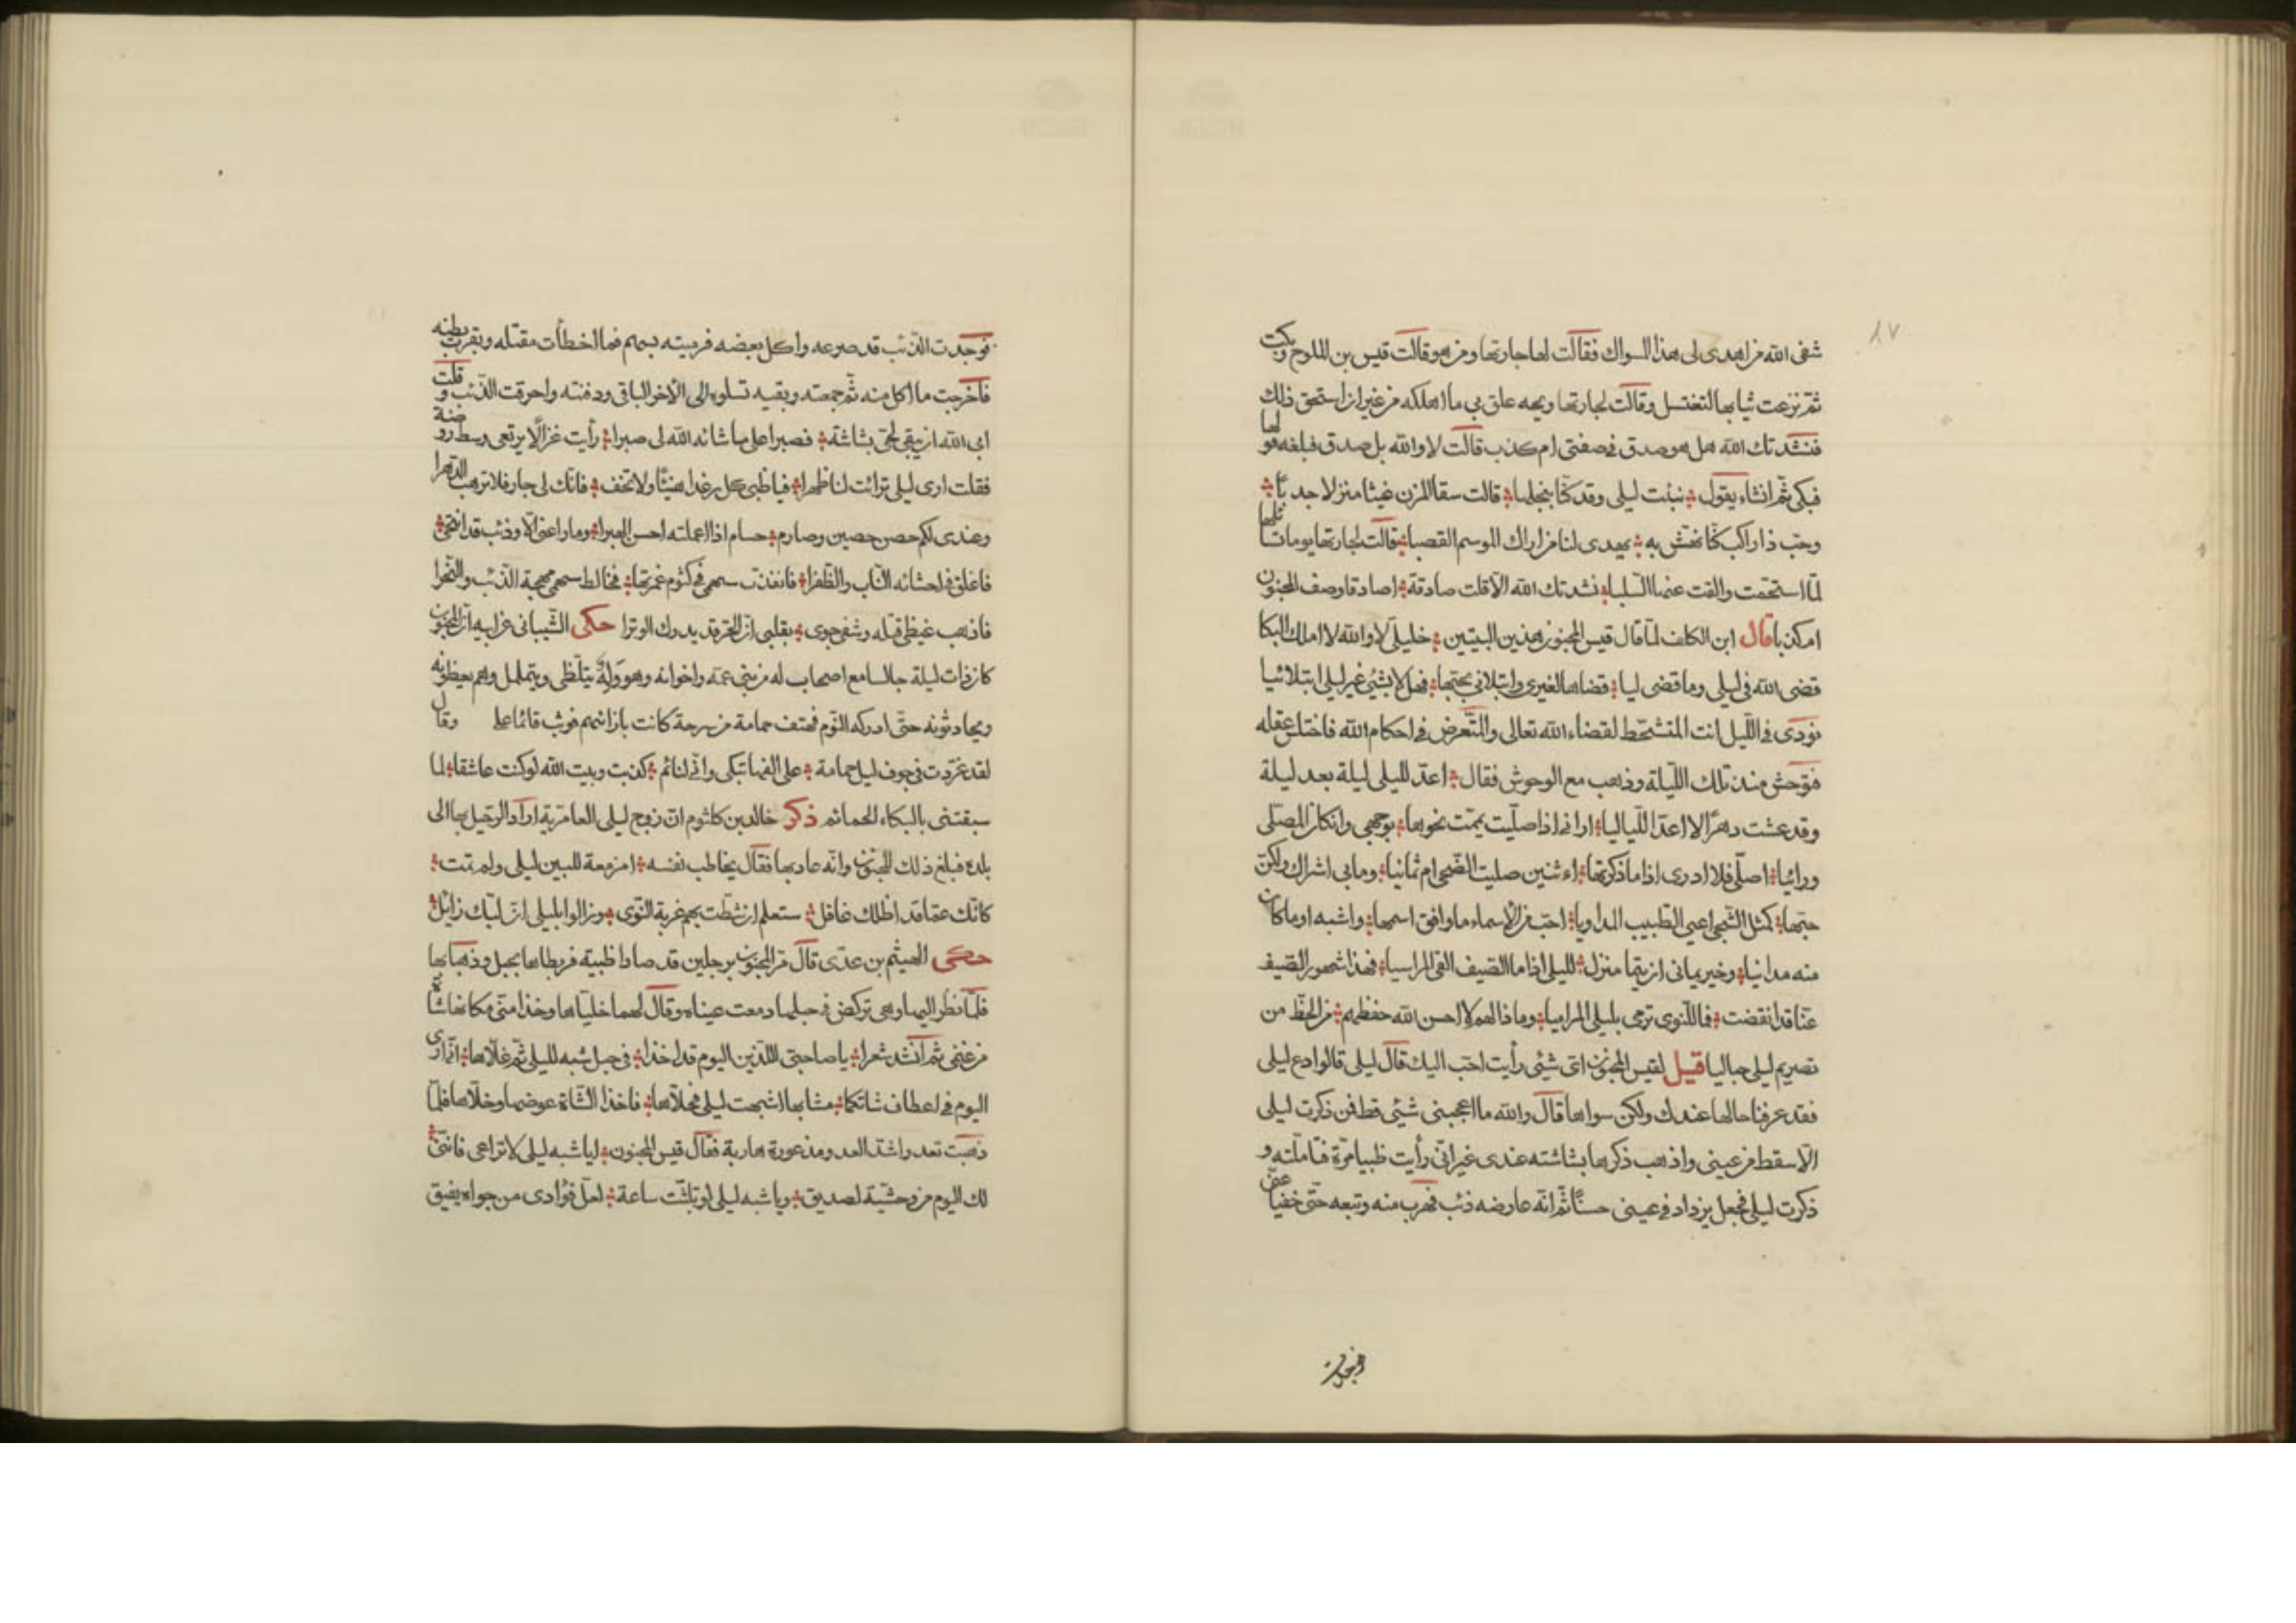 ١٧
شفى الله من اهدى لى هذا السواك فقالت لها جارتها ومن هو قالت قيس بن الملوح وبكت
ثم نزعت ثيابها لتغتسل وقالت لجارتها ويحه علق بى ما اهلكه من غير ان استحق ذلك
فنشدتك الله هل هو صدق فى صفتى ام كذب قالت لا والله بل صدق فبلغه قولها
فبكى ثم انشاء يقول نبئت ليلى وقد كنا نبخلها قالت سقا المزن غيثا منزلا جدبا
وحب ذا راكب كنا نهش به يهدى لنا من اراك الموسم القصبا قالت لجارتها يوما تسائلها
لما استحمت والقت عنها السلبا نشدتك الله الا قلت صادقة اصادقا وصف المجنون
ام كذبا قال ابن الكلف لما قال قيس المجنون هذين البيتين خليلى لا والله لا املك البكا
قضى الله فى ليلى وما قضى ليا قضاها لغيرى وابتلانى بحبها فهل لا بشئ غير ليلى ابتلانيا
نودى فى الليل انت المتسخط لقضاء الله تعالى والمتعرض فى احكام الله فاختلس عقله
فتوحش منذ تلك الليلة وذهب مع الوحوش فقال اعد لليلى ليلة بعد ليلة
وقد عشت دهرا لا اعد اللياليا ارانى اذا صليت يممت نحوها بوجهى وان كان المصلى
ورائيا اصلى فلا ادرى اذا ما ذكرتها اءثنين صليت الضحى ام ثمانيا وما بى اشراك ولكن
حبها كمثل الشجى اعيى الطبيب المداويا احب من الاسماء ما وافق اسمها واشبهه او ما كان
منه مدانيا وخبرتمانى ان تيما منزل لليلى اذا ما الصيف القى المراسيا فهذا شهور الصيف
عنا قد انقضت فما للنوى ترمى بليلى المراميا وماذا لهم لا احسن الله حفظهم من الحظ من
تصريم ليلى حباليا قيل لقيس المجنون اى شئى رأيت احب اليك قال ليلى قالوا دع ليلى
فقد عرفنا حالها عندك ولكن سواها قال والله ما اعجبنى شئى قط فذكرت ليلى
الا سقط من عينى واذهب ذكرها بشاشته عندى غير انى رأيت ظبيا مرة فتأملته و
ذكرت ليلى فجعل يزداد فى عينى حسنا ثم انه عارضه ذئب فهرب منه وتبعه حتى خفيا عنى
فوجدت الذئب قد صرعه واكل بعضه فرميته بسهم فما اخطأت مقتله وبقرت بطنه
فاخرجت ما اكل منه ثم جمعته وبقيه تسلوه الى الاخر الباقى ودفنته واحرقت الذئب وقلت
ابى الله ان يبقى لحى بشاشة فصبرا على ما شائه الله لى صبرا رأيت غزالا يرتعى وسط روضة
فقلت ارى ليلى ترائت لنا ظهرا فيا ظبى كل رغدا هنيئا ولا تخف فانك لى جار فلا ترهب الدهرا
وعندى لكم حصن حصين وصارم حسام اذا اعملته احسن الهبرا وما راعنى الا وذئب قد انتحى
فاعلق فى احشائه الناب والظفرا فانفذت سهمى فى كثوم غمرتها فخالط سهمى مهجة الذئب والنحرا
فاذهب غيظى قتله وشفى جوى بقلبى ان الحر قد يدرك الوترا حكى الشيبانى عن ابيه ان المجنون
كان ذات ليلة جالسا مع اصحاب له من بنى عمه واخوانه وهو واله يتلظى ويتململ وهم يعظونه
ويحادثونه حتى ادركه النوم فهتف حمامة من سرحة كانت بازائهم فوثب قائما وقال
لقد غردت فى جوف ليل حمامة على الفها تبكى وانى لنائم كذبت وبيت الله لو كنت عاشقا لما
سبقتنى بالبكاء الحمائم ذكر خالد بن كلثوم ان زوج ليلى العامرية اراد الرحيل بها الى
بلده فبلغ ذلك المجنون وانه عاد بها فقال يخاطب نفسه امزمعة للبين ليلى ولم تمت
كانك عما قد اظلك غافل ستعلم ان شطت بهم غربة النوى وزالوا بليلى ان لبك زائل
حكى الهيثم بن عدى قال مر المجنون برجلين قد صادا ظبية فربطاها بحبل وذهبا بها
فلما نظر اليها وهى تركض فى حبلها دمعت عيناه وقال لهما خلياها وخذا منى مكانها شاة
من غنمى ثم انشد شعرا يا صاحبى اللذين اليوم قد اخذا فى حبل شبه لليلى ثم غلاها انى ارى
اليوم فى اعطاف شاتكما مشابها اشبهت ليلى فحلاها فاخذا الشاة عوضها وخلاها فلما
ذهبت تعد واشد العدو مذعورة هاربة فقال قيس المجنون ايا شبه ليلى لا تراعى فاننى
لك اليوم من وحشية لصديق ويا شبه ليلى لو تلبثت ساعة لعل فؤادى من جواه يفيق